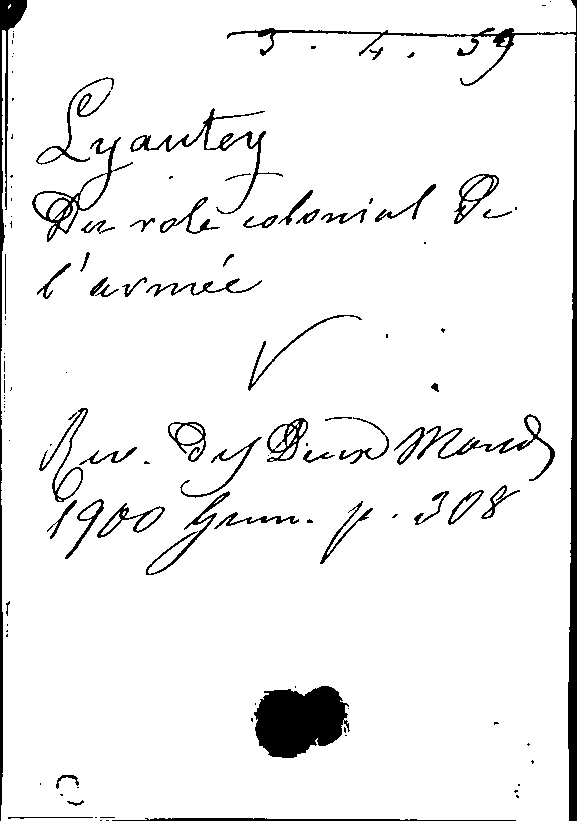 3. 4. 59
Lyautey
Du role colonial de
l'armée
Rev. des Deux Mond
1900 p. 308